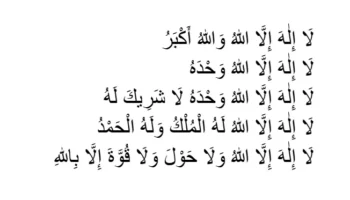 لَا إِلٰهَ إِلَّا اللهُ وَاللهُ أَكْبَرُ
لَا إِلٰهَ إِلَّا اللهُ وَحْدَهُ
لَا إِلٰهَ إِلَّا اللهُ وَحْدَهُ لَا شَرِيكَ لَهُ
لَا إِلٰهَ إِلَّا اللهُ لَهُ الْمُلْكُ وَلَهُ الْحَمْدُ
لَا إِلٰهَ إِلَّا اللهُ وَلَا حَوْلَ وَلَا قُوَّةَ إِلَّا بِاللهِ